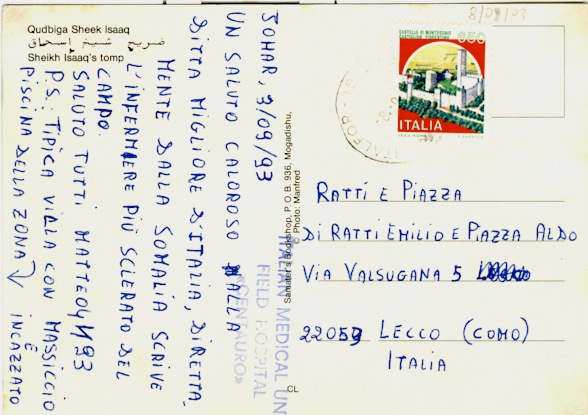 Qudbiga Sheek Isaaq
ضريح شيخ إسحاق
Sheikh Isaaq's tomp
JOHAR, 3/09/93
UN SALUTO CALOROSO ALLA
DITTA MIGLIORE D'ITALIA, DIRETTA
MENTE DALLA SOMALIA SCRIVE
L'INFERMIERE PIÙ SCLERATO DEL
CAMPO.
SALUTO TUTTI MATTEO 4/93
P.S.: TIPICA VILLA CON MASSICCIO
PISCINA DELLA ZONA È INCAZZATO
Samater's Bookshop, P.O.B. 936, Mogadishu,
© Photo: Manfred
ITALIAN MEDICAL UN
FIELD HOSPITAL
«CENTAURO»
CL
8/09/93
CASTELLO DI MONTECCHIO
CASTIGLION FIORENTINO
650
ITALIA
RATTI E PIAZZA
DI RATTI EMILIO E PIAZZA ALDO
VIA VALSUGANA 5
22053 LECCO (COMO)
ITALIA